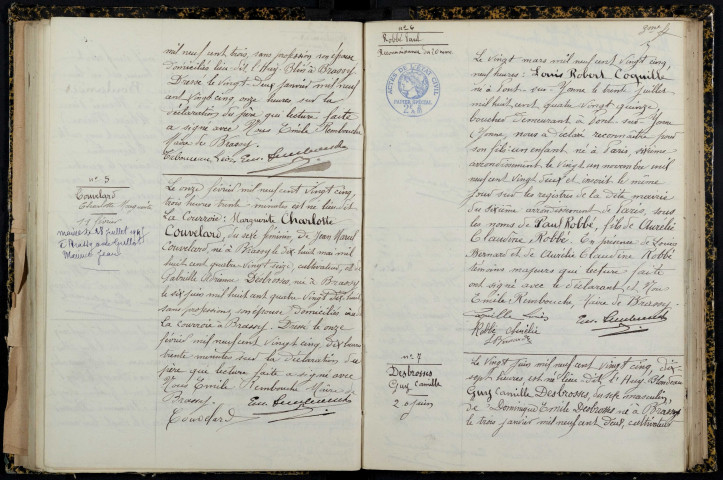 mil neuf cent trois, sans profession son épouse
domiciliés lieu dit l'Huy Blin à Brassy.
Dressé le vingt deux janvier mil neuf
cent vingt cinq onze heures sur la
déclaration du père qui lecture faite
a signé avec Nous Emile Rembouche
Maire de Brassy.
n° 5
Couvelard
Charlotte Marguerite
11 février
Le onze février mil neuf cent vingt cinq,
trois heures trente minutes est née lieu dit
La Courroie: Marguerite Charlotte
Couvelard, du sexe féminin, de Jean Marcel
Couvelard, né à Brassy le dix huit mai mil
huit cent quatre vingt seize, cultivateur, et de
Gabrielle Adrienne Desbrosses, née à Brassy
le six juin mil huit cent quatre vingt dix huit
sans profession, son épouse domiciliés à
la Courroie à Brassy. Dressé le onze
février mil neuf cent vingt cinq, dix heures
trente minutes sur la déclaration du
père qui lecture faite a signé avec
Nous Emile Rembouche Maire de
Brassy.
Couvelard
n° 6
Robbé Paul
Reconnaissance du 20 mars
ACTES DE L'ÉTAT CIVIL
PAPIER SPÉCIAL
Le vingt mars mil neuf cent vingt cinq,
neuf heures: Louis Robert Coquille
né à Pont sur Yonne le trente juillet
mil huit cent quatre vingt quinze,
boucher demeurant à Pont sur Yonne
Yonne, nous a déclaré reconnaître pour
son fils un enfant né à Paris, sixième
arrondissement, le vingt un novembre mil
neuf cent vingt deux et inscrit le même
jour sur les registres de la dite mairie
du sixième arrondissement de Paris, sous
les noms de Paul Robbé, fils de Aurélie
Claudine Robbé. En présence de Louis
Bernard et de Aurélie Claudine Robbé
témoins majeurs qui lecture faite
ont signé avec le déclarant et Nous
Emile Rembouche, Maire de Brassy.
Coquille Louis
Robbé Aurélie
n° 7
Desbrosses
Guy Camille
20 juin
Le vingt juin mil neuf cent vingt cinq, dix
sept heures est né lieu dit l'Huy
Guy Camille Desbrosses, du sexe masculin,
de Dominique Emile Desbrosses né à Brassy
le trois janvier mil neuf cent deux, cultivateur